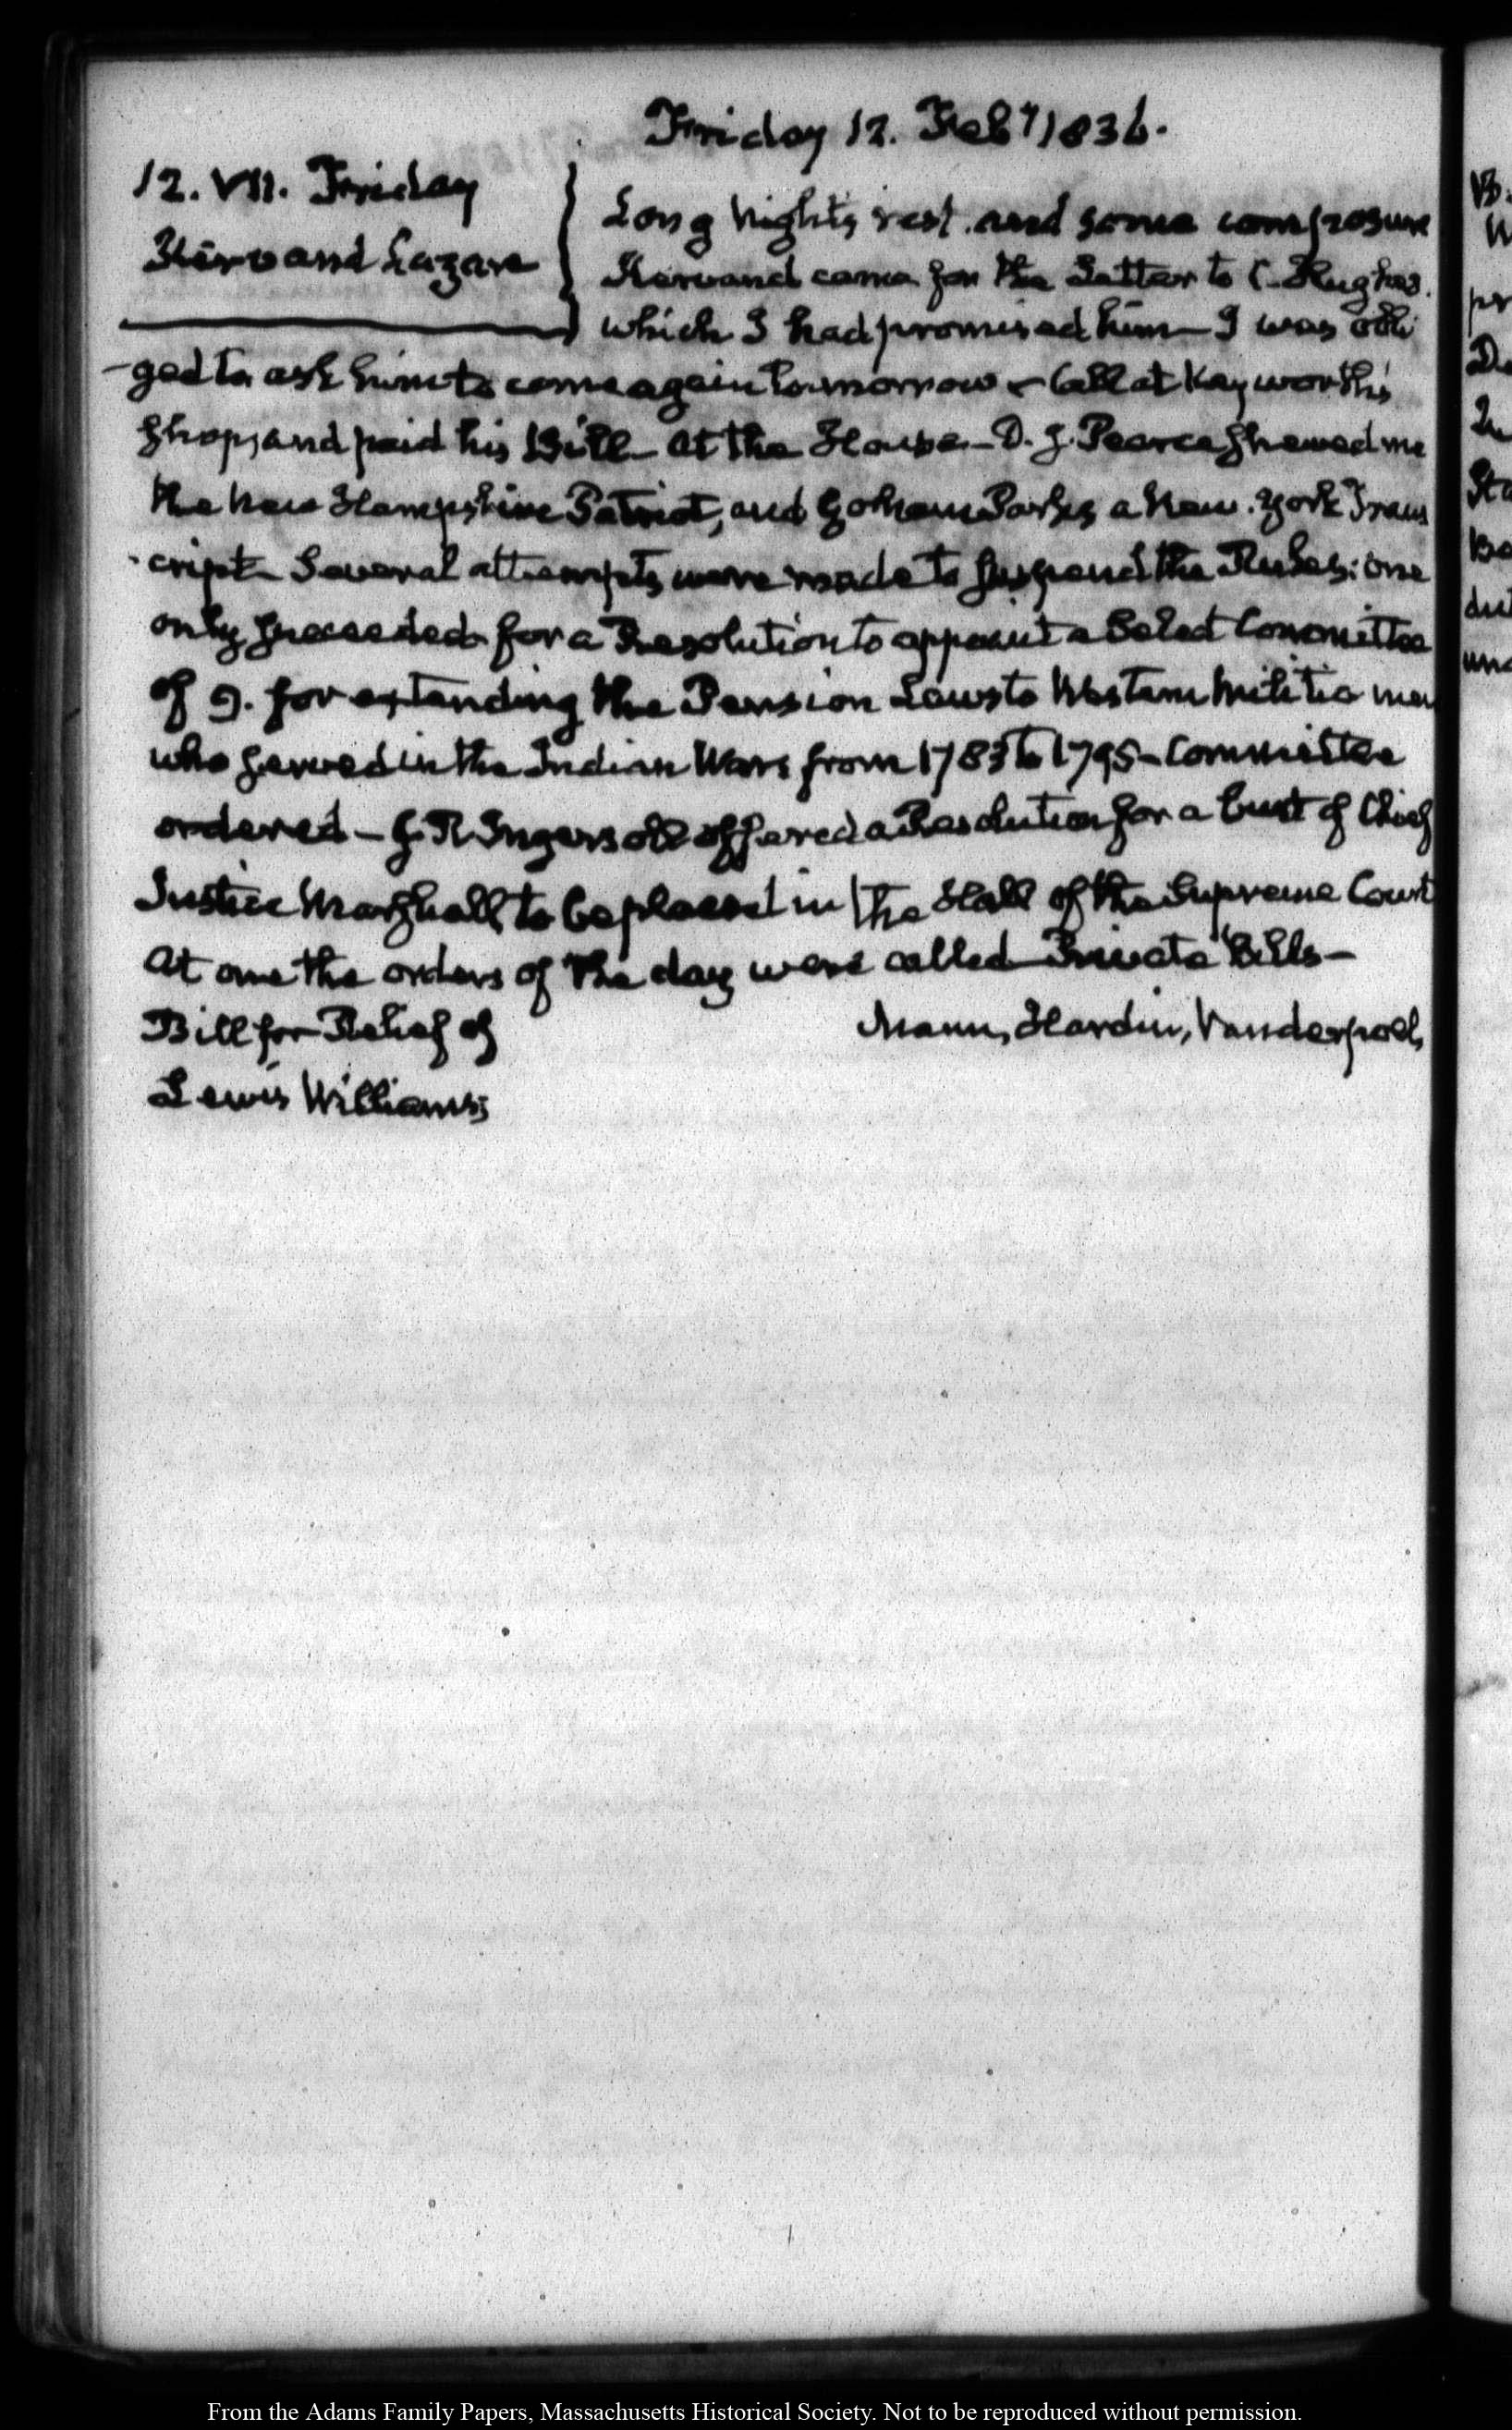 Friday 12. Feby 1836.
12. VII. Friday
Kervand Lazare
Long night's rest. and some composure
Kervand came for the Letter to C. Hughes.
which I had promised him— I was obli
-ged to ask him to come again to-morrow— Call at Kayworth's
shop, and paid his Bill— At the House— D. J. Pearce shewed me
the New Hampshire Patriot, and Gorham Parks a New-York Trans
-cript— Several attempts were made to suspend the Rules: one
only succeeded for a Resolution to appoint a Select Committee
of 9. for extending the Pension Laws to Western Militia men
who served in the Indian Wars from 1783 to 1795— Committee
ordered— J R Ingersoll offered a Resolution for a bust of Chief
Justice Marshall, to be placed in the Hall of the Supreme Court
At one the orders of the day were called— Private Bills—
Bill for Relief of
Mann, Hardin, Vanderpoel,
Lewis Williams;
From the Adams Family Papers, Massachusetts Historical Society. Not to be reproduced without permission.